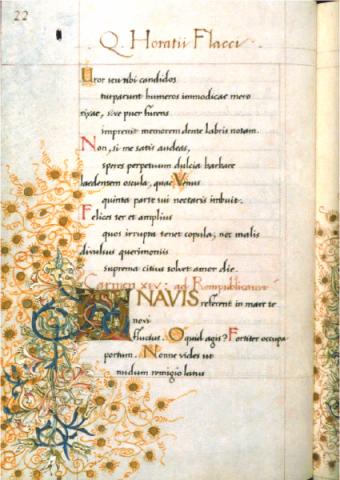 22
Q. Horatii Flacci
Uror seu tibi candidos
turparunt humeros immodicae mero
rixae, sive puer furens
impressit memorem dente labris notam.
Non, si me satis audeas,
speres perpetuum dulcia barbare
laedentem oscula, quae Venus
quinta parte sui nectaris imbuit.
Felices ter et amplius
quos irrupta tenet copula, nec malis
divulsus querimoniis
suprema citius solvet amor die.
Carmen XIV. ad Rempublicam
O NAVIS referent in mare te
novi
fluctus. O quid agis? Fortiter occupa
portum. Nonne vides ut
nudum remigio latus